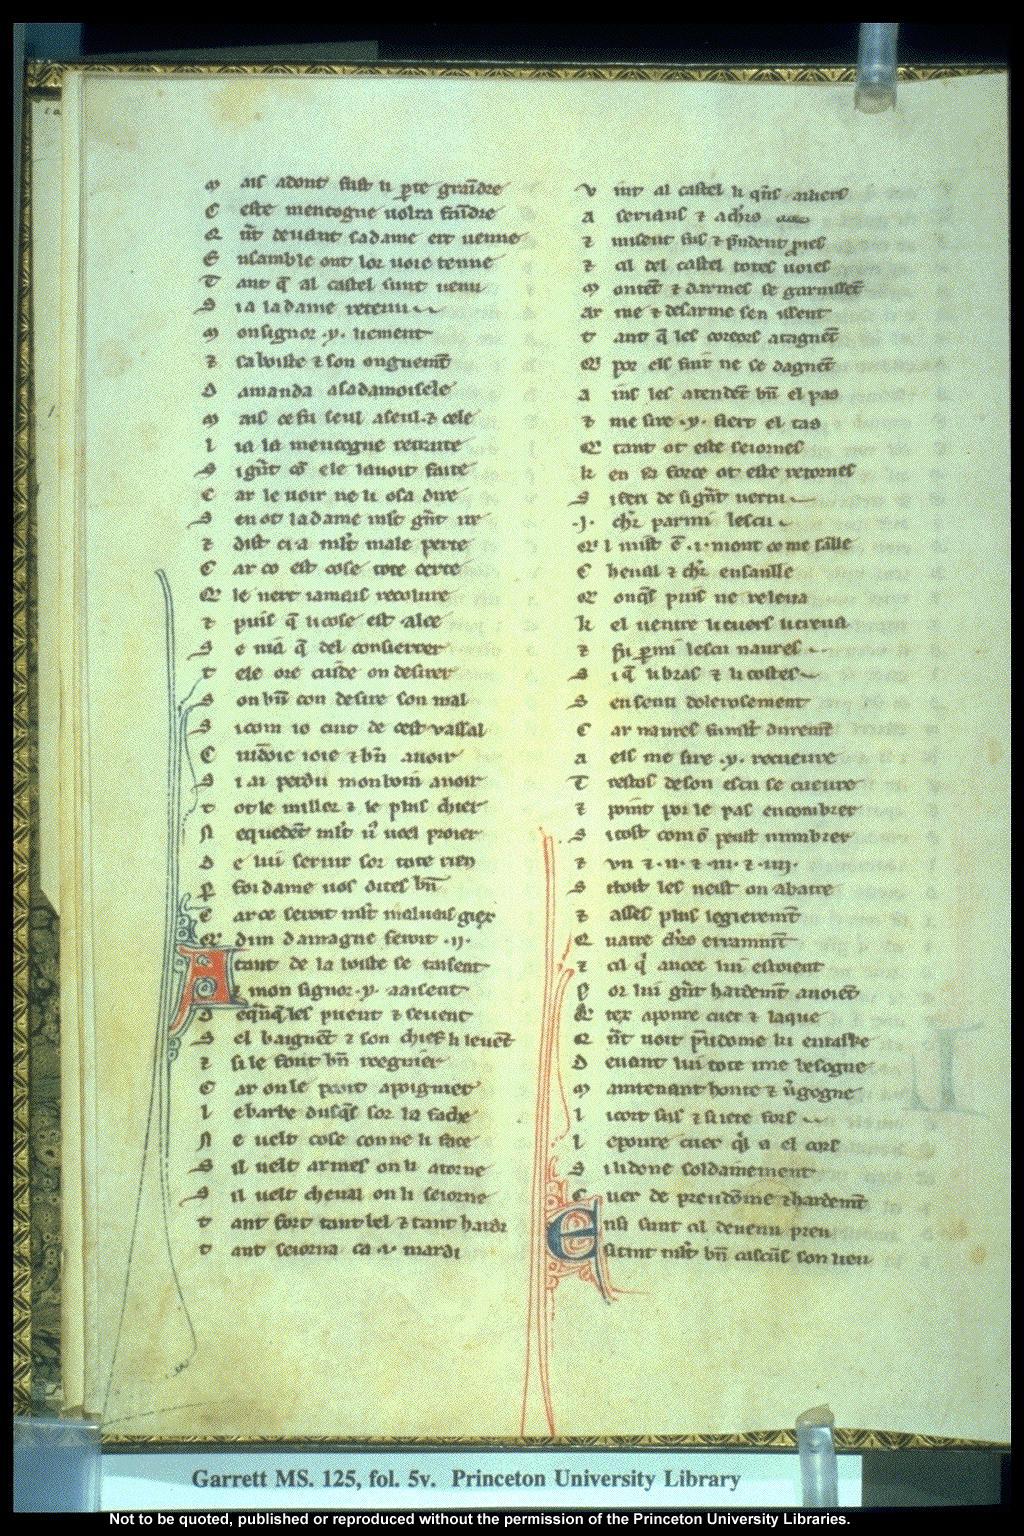 M ais adont fust li ꝑte graīdre
C este mencogne uolra faīdre
Q ūt deuant sa dame ert uenue
E nsamble ont lor uoie tenue
T ant q̄ al castel sunt uenu
S i a la dame retenu
M onsignor .y. liement
⁊ sa boiste ⁊ son onguemt̄
D amanda a sa damoisele
M ais ce fu seul a seul ⁊ cele
l i a la mencogne retraite
S i gnt̄ com ele lauoit faite
C ar le uoir ne li osa dire
S en ot la dame mlt̄ gnt̄ ire
⁊ dist ci a mlt̄ male perte
C ar co est cose tote certe
Q le nert iamais recoluree
⁊ puis q̄ li cose est alee
S e nia q̄ del consierrer
t ele ore cuide on desirer
S on bn̄ con desire son mal
S icom io cuit de cest vassal
C uidoie ioie ⁊ bn̄ auoir
S i ai perdu mon boin auoir
t ot le millor ⁊ le plus chier
N equedēt mlt̄ u' uoel proier
D e lui seruir sor tote rien
P foi dame uos dites bn̄
C ar ce seroit mlt̄ maluais giex
Q dun damagne feroit .ij.
A tant de la boiste se taisent
⁊ mon signor .y. aaisent
D e q̄nq̄ les pueent ⁊ seuent
S el baignēt ⁊ son chief li leuēt
⁊ si le font bn̄ reegnier
C ar on le peut apoignier
l e barbe dusq̄s sor la face
N e uelt cose con ne li face
S il uelt armes on li atorne
S il uelt cheual on li seiorne
t ant fort tant bel ⁊ tant hardi
t ant seiorna ca .i. mardi
V int al castel li q̄ns aliers
A serians ⁊ a chr̄s
⁊ misent fus ⁊ pr̄ndent proies
⁊ cil del castel totes uoies
M ontēt ⁊ darmes se garnissēt
Ar me ⁊ desarme sen issent
t ant q̄ les coreors ataignēt
Q por els fuir ne se dagnēt
A ins les atendēt bn̄ el pas
⁊ me sire .y. fiert el tas
Q tant ot este seiornes
k en sa force ot este retornes
S i feri de si gnt̄ uertu
.J. chr̄ parmi lescu
Q l mist ē .i. mont ce me sāle
C heual ⁊ chr̄ ensanlle
Q onq̄s puis ne releua
k el uentre li cuers li creua
⁊ fu ꝑmi lescu naures
S i q̄ li bras ⁊ li costes
S en senti dolerosement
C ar naures fu mlt̄ duremt̄
A els me sire .y. recueure
T restos de son escu se cueure
⁊ point por le pas encombrer
S i tost com ō peust nunbrer
⁊ vn ⁊ .ii. ⁊ .iii. ⁊ .iiij.
S itost les ueist on abatre
⁊ asses plus legieremt̄
Q uatre chr̄s erranmt̄
⁊ cil q̄ auoec lui estoient
P or lui gnt̄ hardemt̄ auoiēt
Q tex a poure cuer ⁊ laque
Q nt̄ uoit pr̄udome ki entaske
D euant lui tote une besogne
M aintenant honte ⁊ u'gogne
l i cort sus ⁊ si iete fors
l e poure cuer q̄l a el cors
S i li done soldainement
C uer de preudōme ⁊ hardemt̄
E nsi sunt cil deuenu preu
Si tint mlt̄ bn̄ cascūs son lieu
Garrett MS. 125, fol. 5v. Princeton University Library
Not to be quoted, published or reproduced without the permission of the Princeton University Libraries.